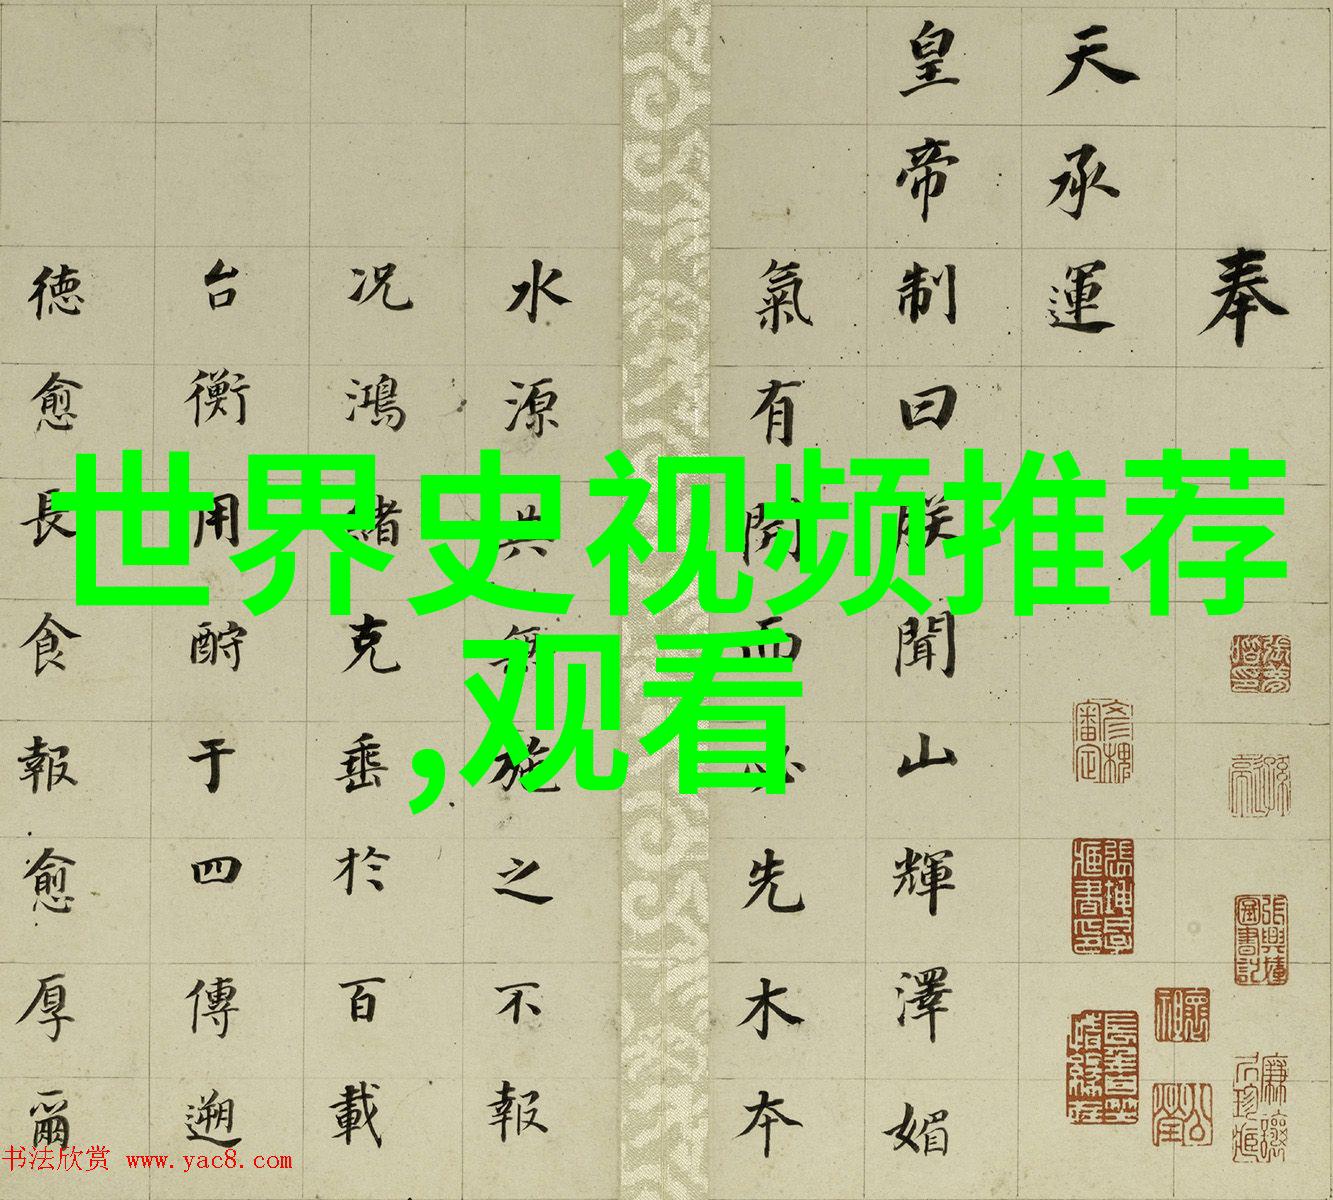 奉
天承運
皇帝制曰朕聞山輝澤媚
氣有開而必先木本
水源共無施之不報
况鴻緒克垂於百載
台衡用酹于四傳遡
德愈長食報愈厚爾
世界史视频推荐
,观看
书法欣赏 www.yac8.com